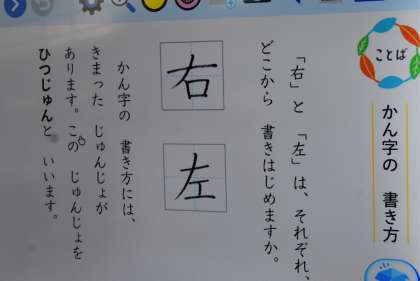 ことば
かん字の　書き方
「右」と　「左」は、それぞれ、
どこから　書きはじめますか。
右
左
かん字の　書き方には、
きまった　じゅんじょが
あります。この　じゅんじょを
ひつじゅんと　いいます。